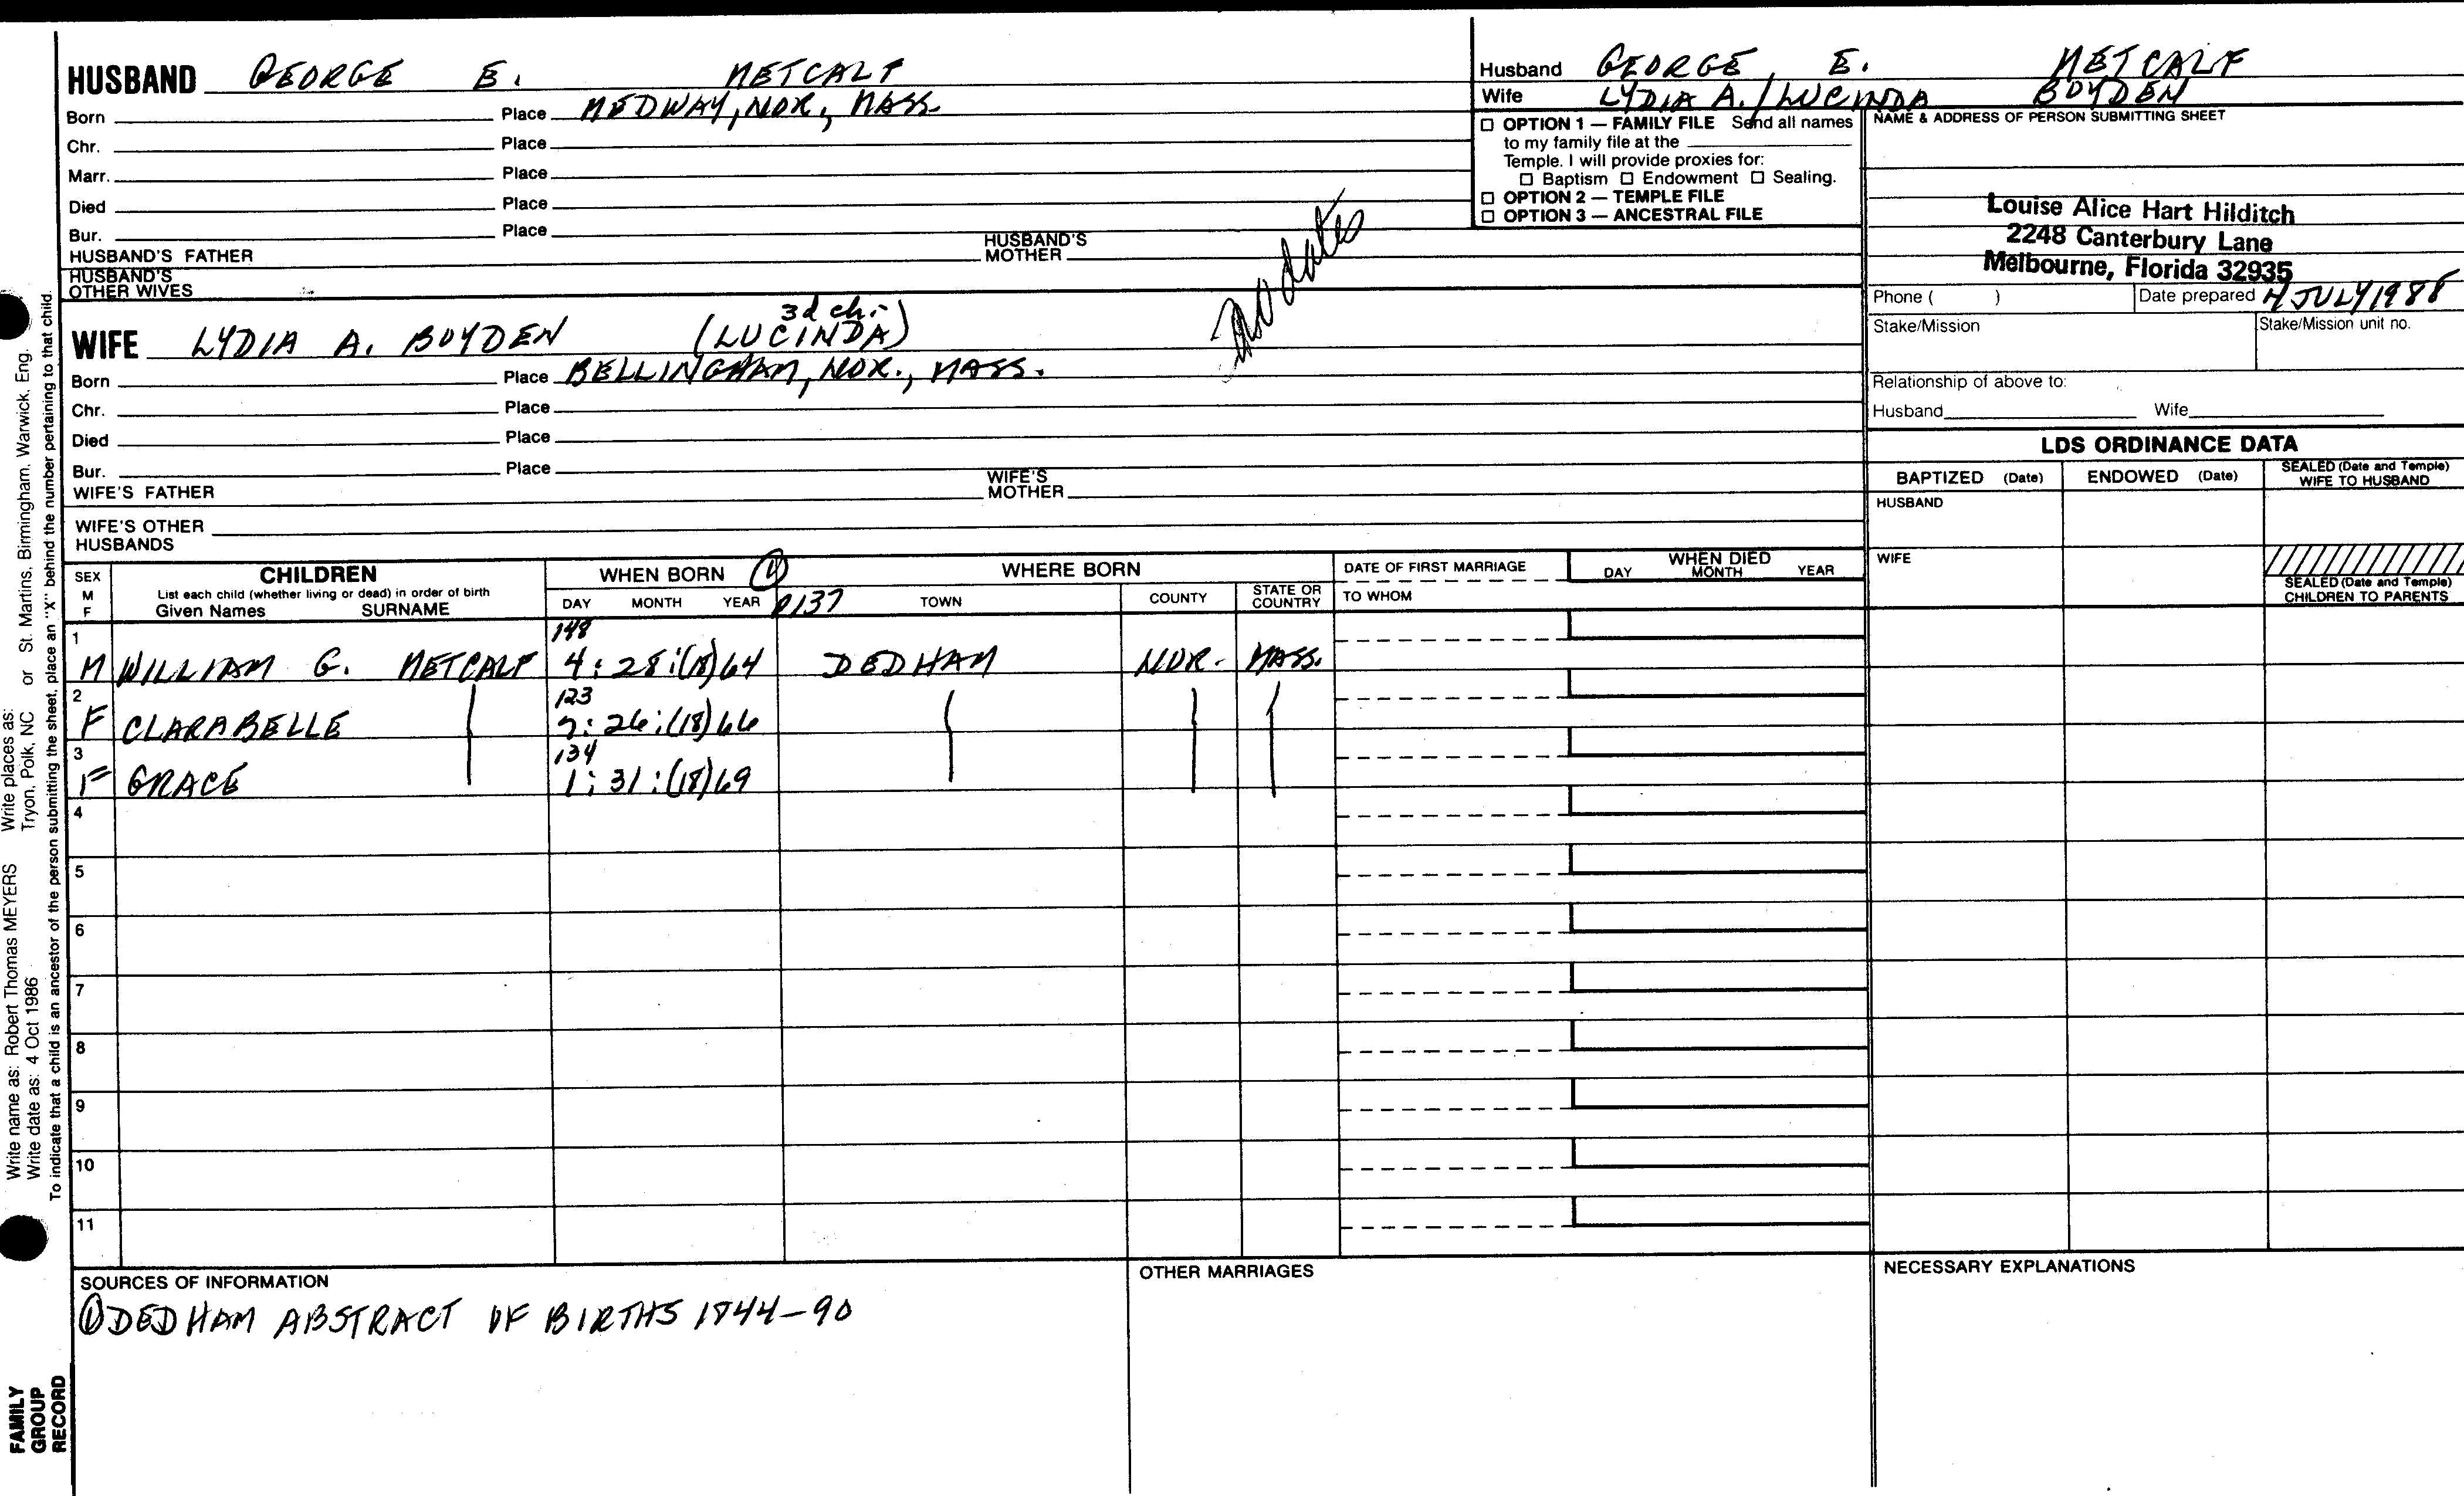 HUSBAND GEORGE E. METCALF
Born Place MEDWAY, NOR., MASS.
Chr. Place
Marr. Place
Died Place
Bur. Place
HUSBAND'S FATHER HUSBAND'S MOTHER
HUSBAND'S OTHER WIVES
no dates
3d ch.
WIFE LYDIA A. BOYDEN (LUCINDA)
Born Place BELLINGHAM, NOR., MASS.
Chr. Place
Died Place
Bur. Place
WIFE'S FATHER WIFE'S MOTHER
WIFE'S OTHER HUSBANDS
Husband GEORGE E. METCALF
Wife LYDIA A. / LUCINDA BOYDEN
OPTION 1 — FAMILY FILE Send all names
to my family file at the
Temple. I will provide proxies for:
Baptism Endowment Sealing.
OPTION 2 — TEMPLE FILE
OPTION 3 — ANCESTRAL FILE
NAME & ADDRESS OF PERSON SUBMITTING SHEET
Louise Alice Hart Hilditch
2248 Canterbury Lane
Melbourne, Florida 32935
Phone ( ) Date prepared 4 JULY 1988
Stake/Mission Stake/Mission unit no.
Relationship of above to:
Husband Wife
LDS ORDINANCE DATA
BAPTIZED (Date) ENDOWED (Date) SEALED (Date and Temple) WIFE TO HUSBAND
HUSBAND
WIFE
SEALED (Date and Temple) CHILDREN TO PARENTS
SEX M F
CHILDREN
List each child (whether living or dead) in order of birth
Given Names SURNAME
WHEN BORN ①
DAY MONTH YEAR p137
WHERE BORN
TOWN COUNTY STATE OR COUNTRY
DATE OF FIRST MARRIAGE
TO WHOM
WHEN DIED
DAY MONTH YEAR
1 148
M WILLIAM G. METCALF 4:28:(18)64 DEDHAM NOR. MASS.
2 123
F CLARABELLE 7:26:(18)66
3 134
F GRACE 1:31:(18)69
4
5
6
7
8
9
10
11
SOURCES OF INFORMATION
① DEDHAM ABSTRACT OF BIRTHS 1844-90
OTHER MARRIAGES
NECESSARY EXPLANATIONS
Write name as: Robert Thomas MEYERS Write places as: St. Martins, Birmingham, Warwick, Eng.
Write date as: 4 Oct 1986 Tryon, Polk, NC or
To indicate that a child is an ancestor of the person submitting the sheet, place an "X" behind the number pertaining to that child.
FAMILY
GROUP
RECORD